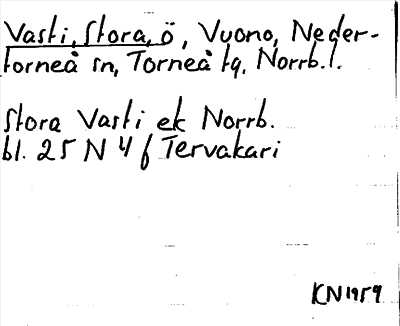 Vasti, Stora, ö, Vuono, Neder-
torneå sn, Torneå tg, Norrb. l.
Stora Vasti ek Norrb.
bl. 25 N 4 f Tervakari
KN 1959